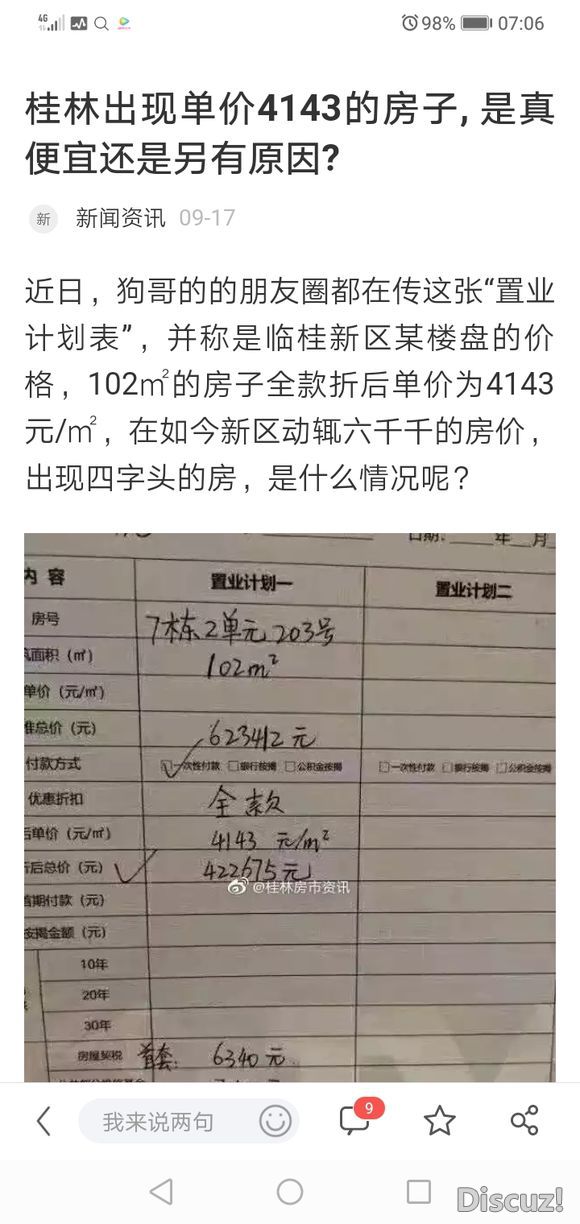 4G 98% 07:06
桂林出现单价4143的房子,是真
便宜还是另有原因?
新 新闻资讯 09-17
近日，狗哥的的朋友圈都在传这张“置业
计划表”，并称是临桂新区某楼盘的价
格，102㎡的房子全款折后单价为4143
元/㎡，在如今新区动辄六千千的房价，
出现四字头的房，是什么情况呢？
日期：____年__月
内 容 置业计划一 置业计划二
房号 7栋2单元203号
面积（㎡） 102m²
单价（元/㎡）
准总价（元） 623412元
付款方式 一次性付款 银行按揭 公积金按揭 一次性付款 银行按揭 公积金按揭
优惠折扣 全款
后单价（元/㎡） 4143 元/m²
折后总价（元） 422675元
@桂林房市资讯
首期付款（元）
按揭金额（元）
10年
20年
30年
房屋契税 首套: 6340元
我来说两句 9
Discuz!